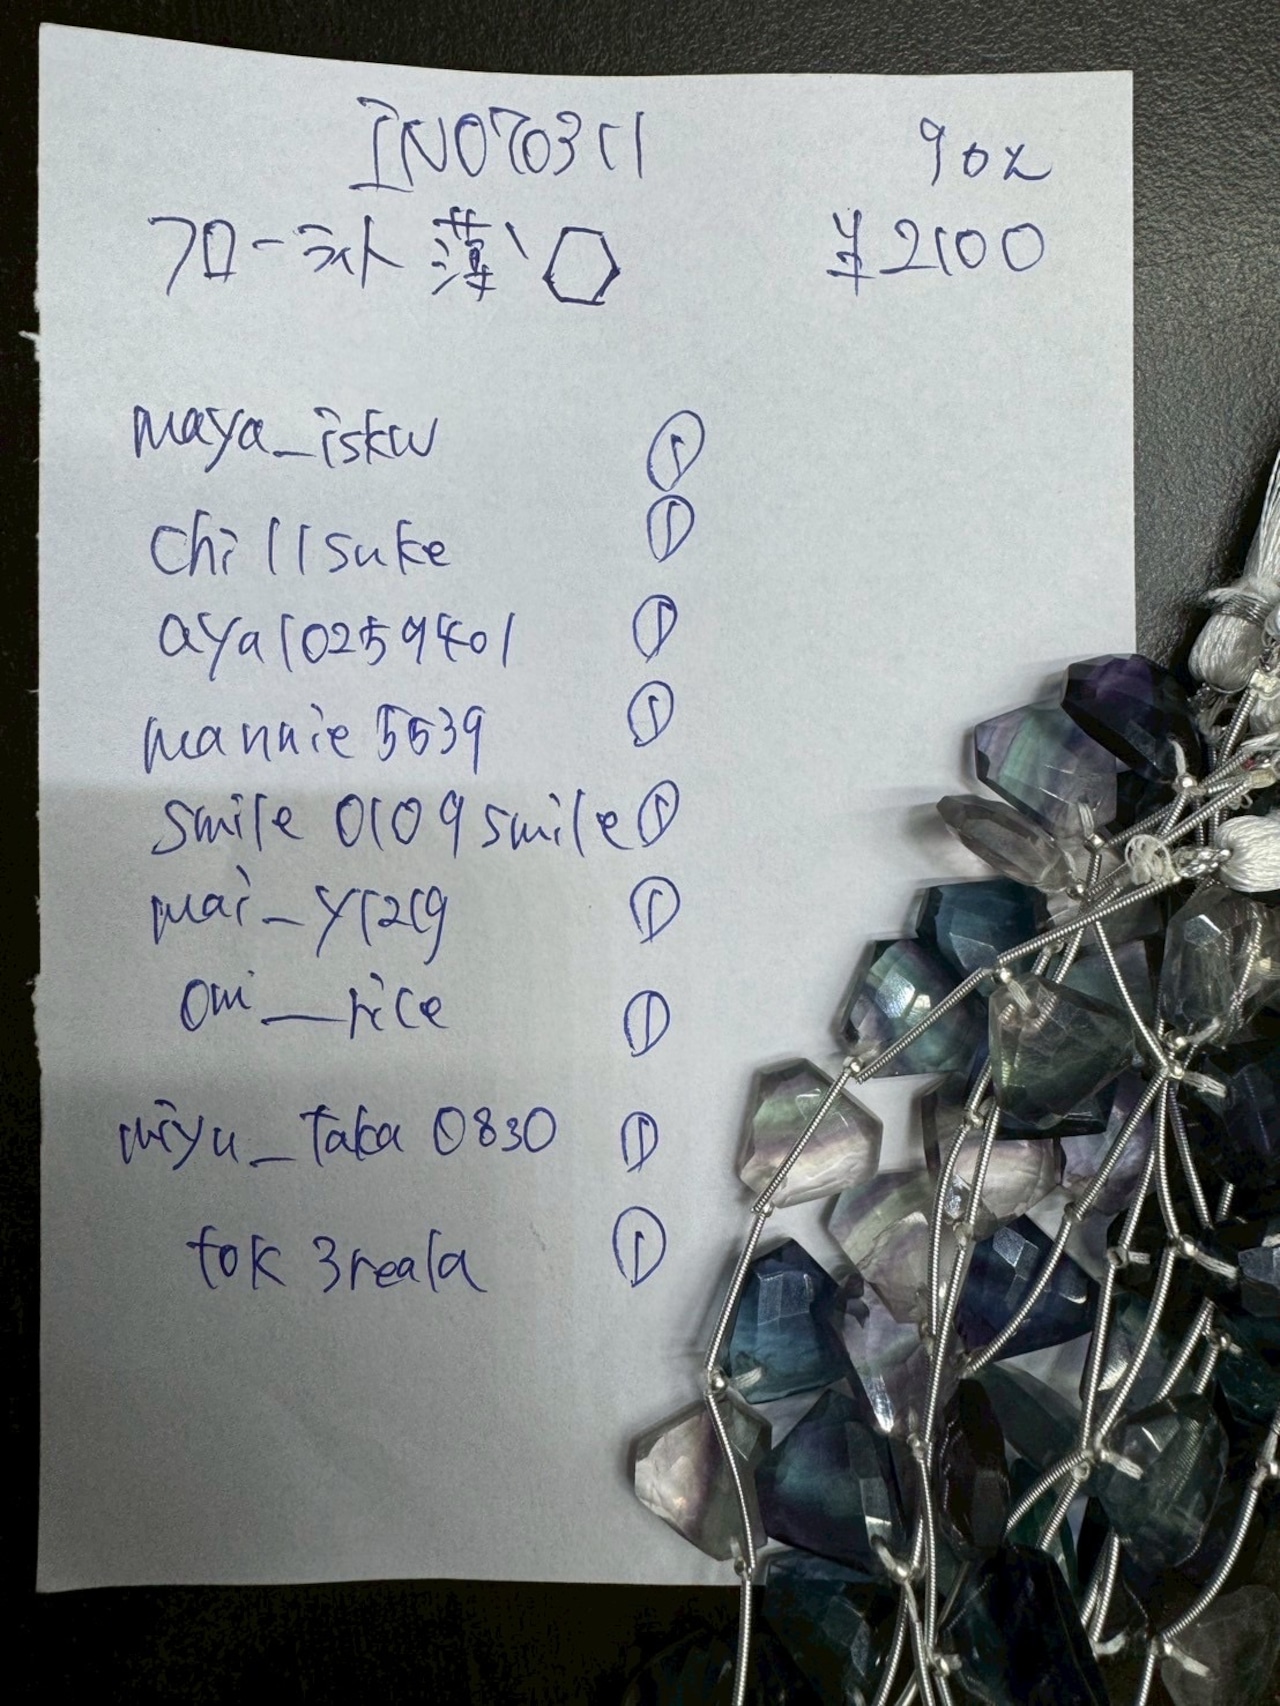 IN070311 90x
フローライト 薄い
¥2100
maya_iskw ①
chillsuke ①
aya10259401 ①
mannie5539 ①
smile0109smile ①
mai_y1219 ①
omi__rice ①
miyu_taka0830 ①
tok3reala ①